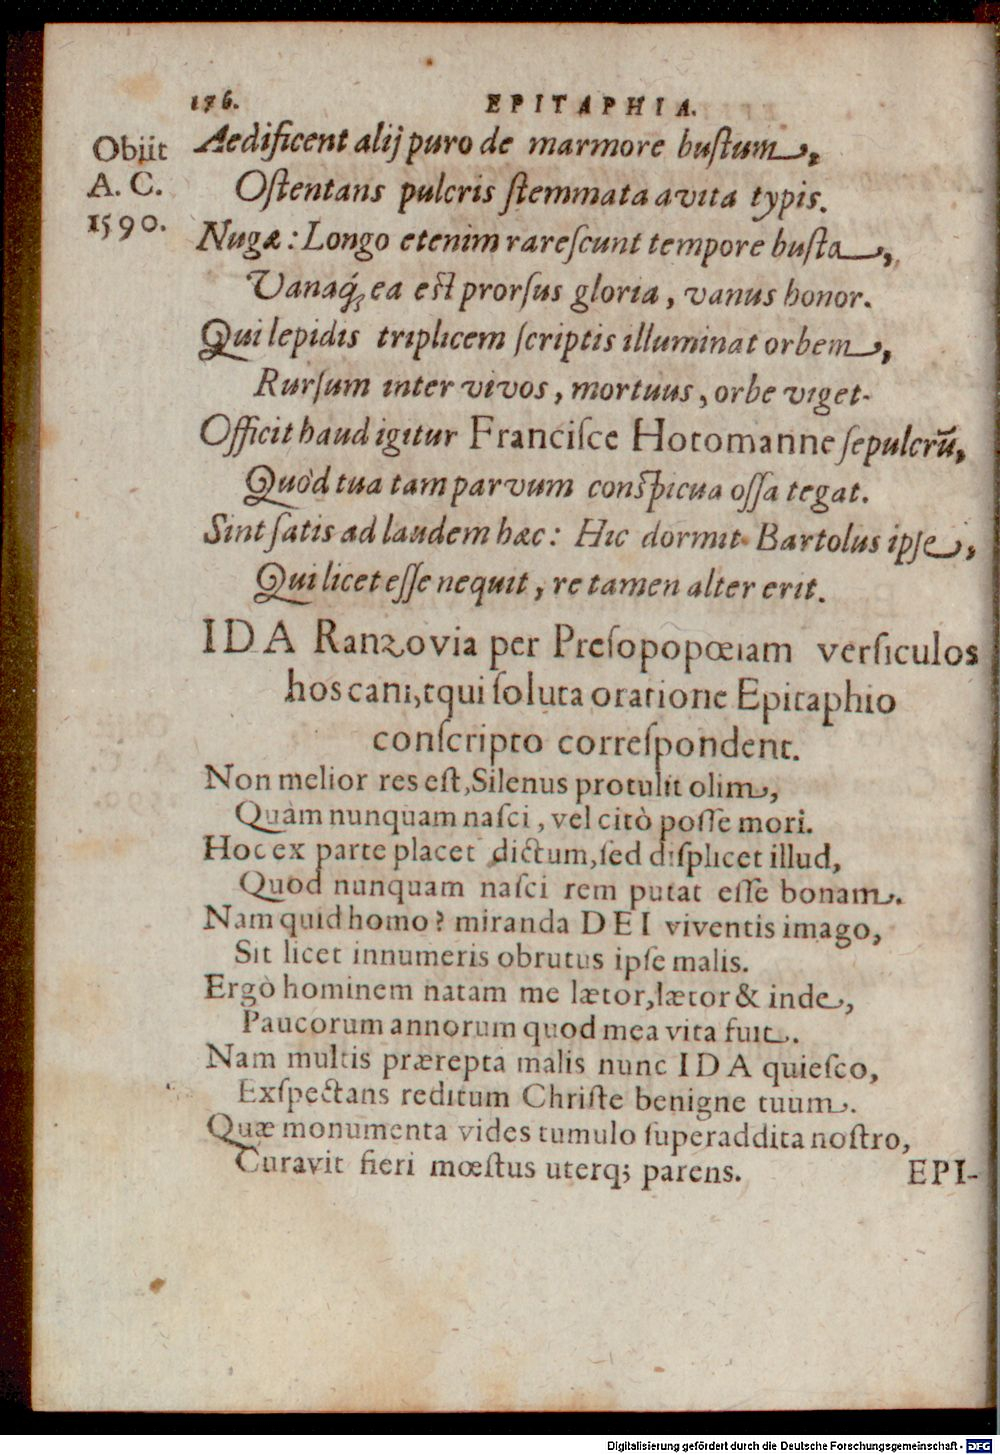 176.
EPITAPHIA.
Obiit
A. C.
1590.
Aedificent alij puro de marmore buſtum,
Oſtentans pulcris ſtemmata avita typis.
Nugæ: Longo etenim rareſcunt tempore buſta,
Vanaq́; ea eſt prorſus gloria, vanus honor.
Qui lepidis triplicem ſcriptis illuminat orbem,
Rurſum inter vivos, mortuus, orbe viget.
Officit haud igitur Franciſce Hotomanne ſepulcrū,
Quòd tua tam parvum conſpicua oſſa tegat.
Sint ſatis ad laudem hæc: Hic dormit Bartolus ipſe,
Qui licet eſſe nequit, re tamen alter erit.
IDA Ranzovia per Preſopopœiam verſiculos
hos cani, tqui ſoluta oratione Epitaphio
conſcripto correſpondent.
Non melior res eſt, Silenus protulit olim,
Quàm nunquam naſci, vel citò poſſe mori.
Hoc ex parte placet dictum, ſed diſplicet illud,
Quod nunquam naſci rem putat eſſe bonam.
Nam quid homo? miranda DEI viventis imago,
Sit licet innumeris obrutus ipſe malis.
Ergò hominem natam me lætor, lætor & inde,
Paucorum annorum quod mea vita fuit.
Nam multis prærepta malis nunc IDA quieſco,
Exſpectans reditum Chriſte benigne tuum.
Quæ monumenta vides tumulo ſuperaddita noſtro,
Curavit fieri mœſtus uterq; parens.
EPI-
Digitalisierung gefördert durch die Deutsche Forschungsgemeinschaft - DFG